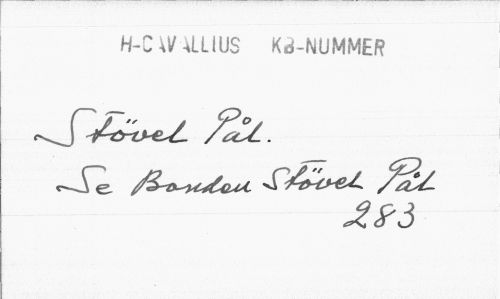 H-CAVALLIUS KB-NUMMER
Stövel Pål.
Se Bonden Stövel Pål
283